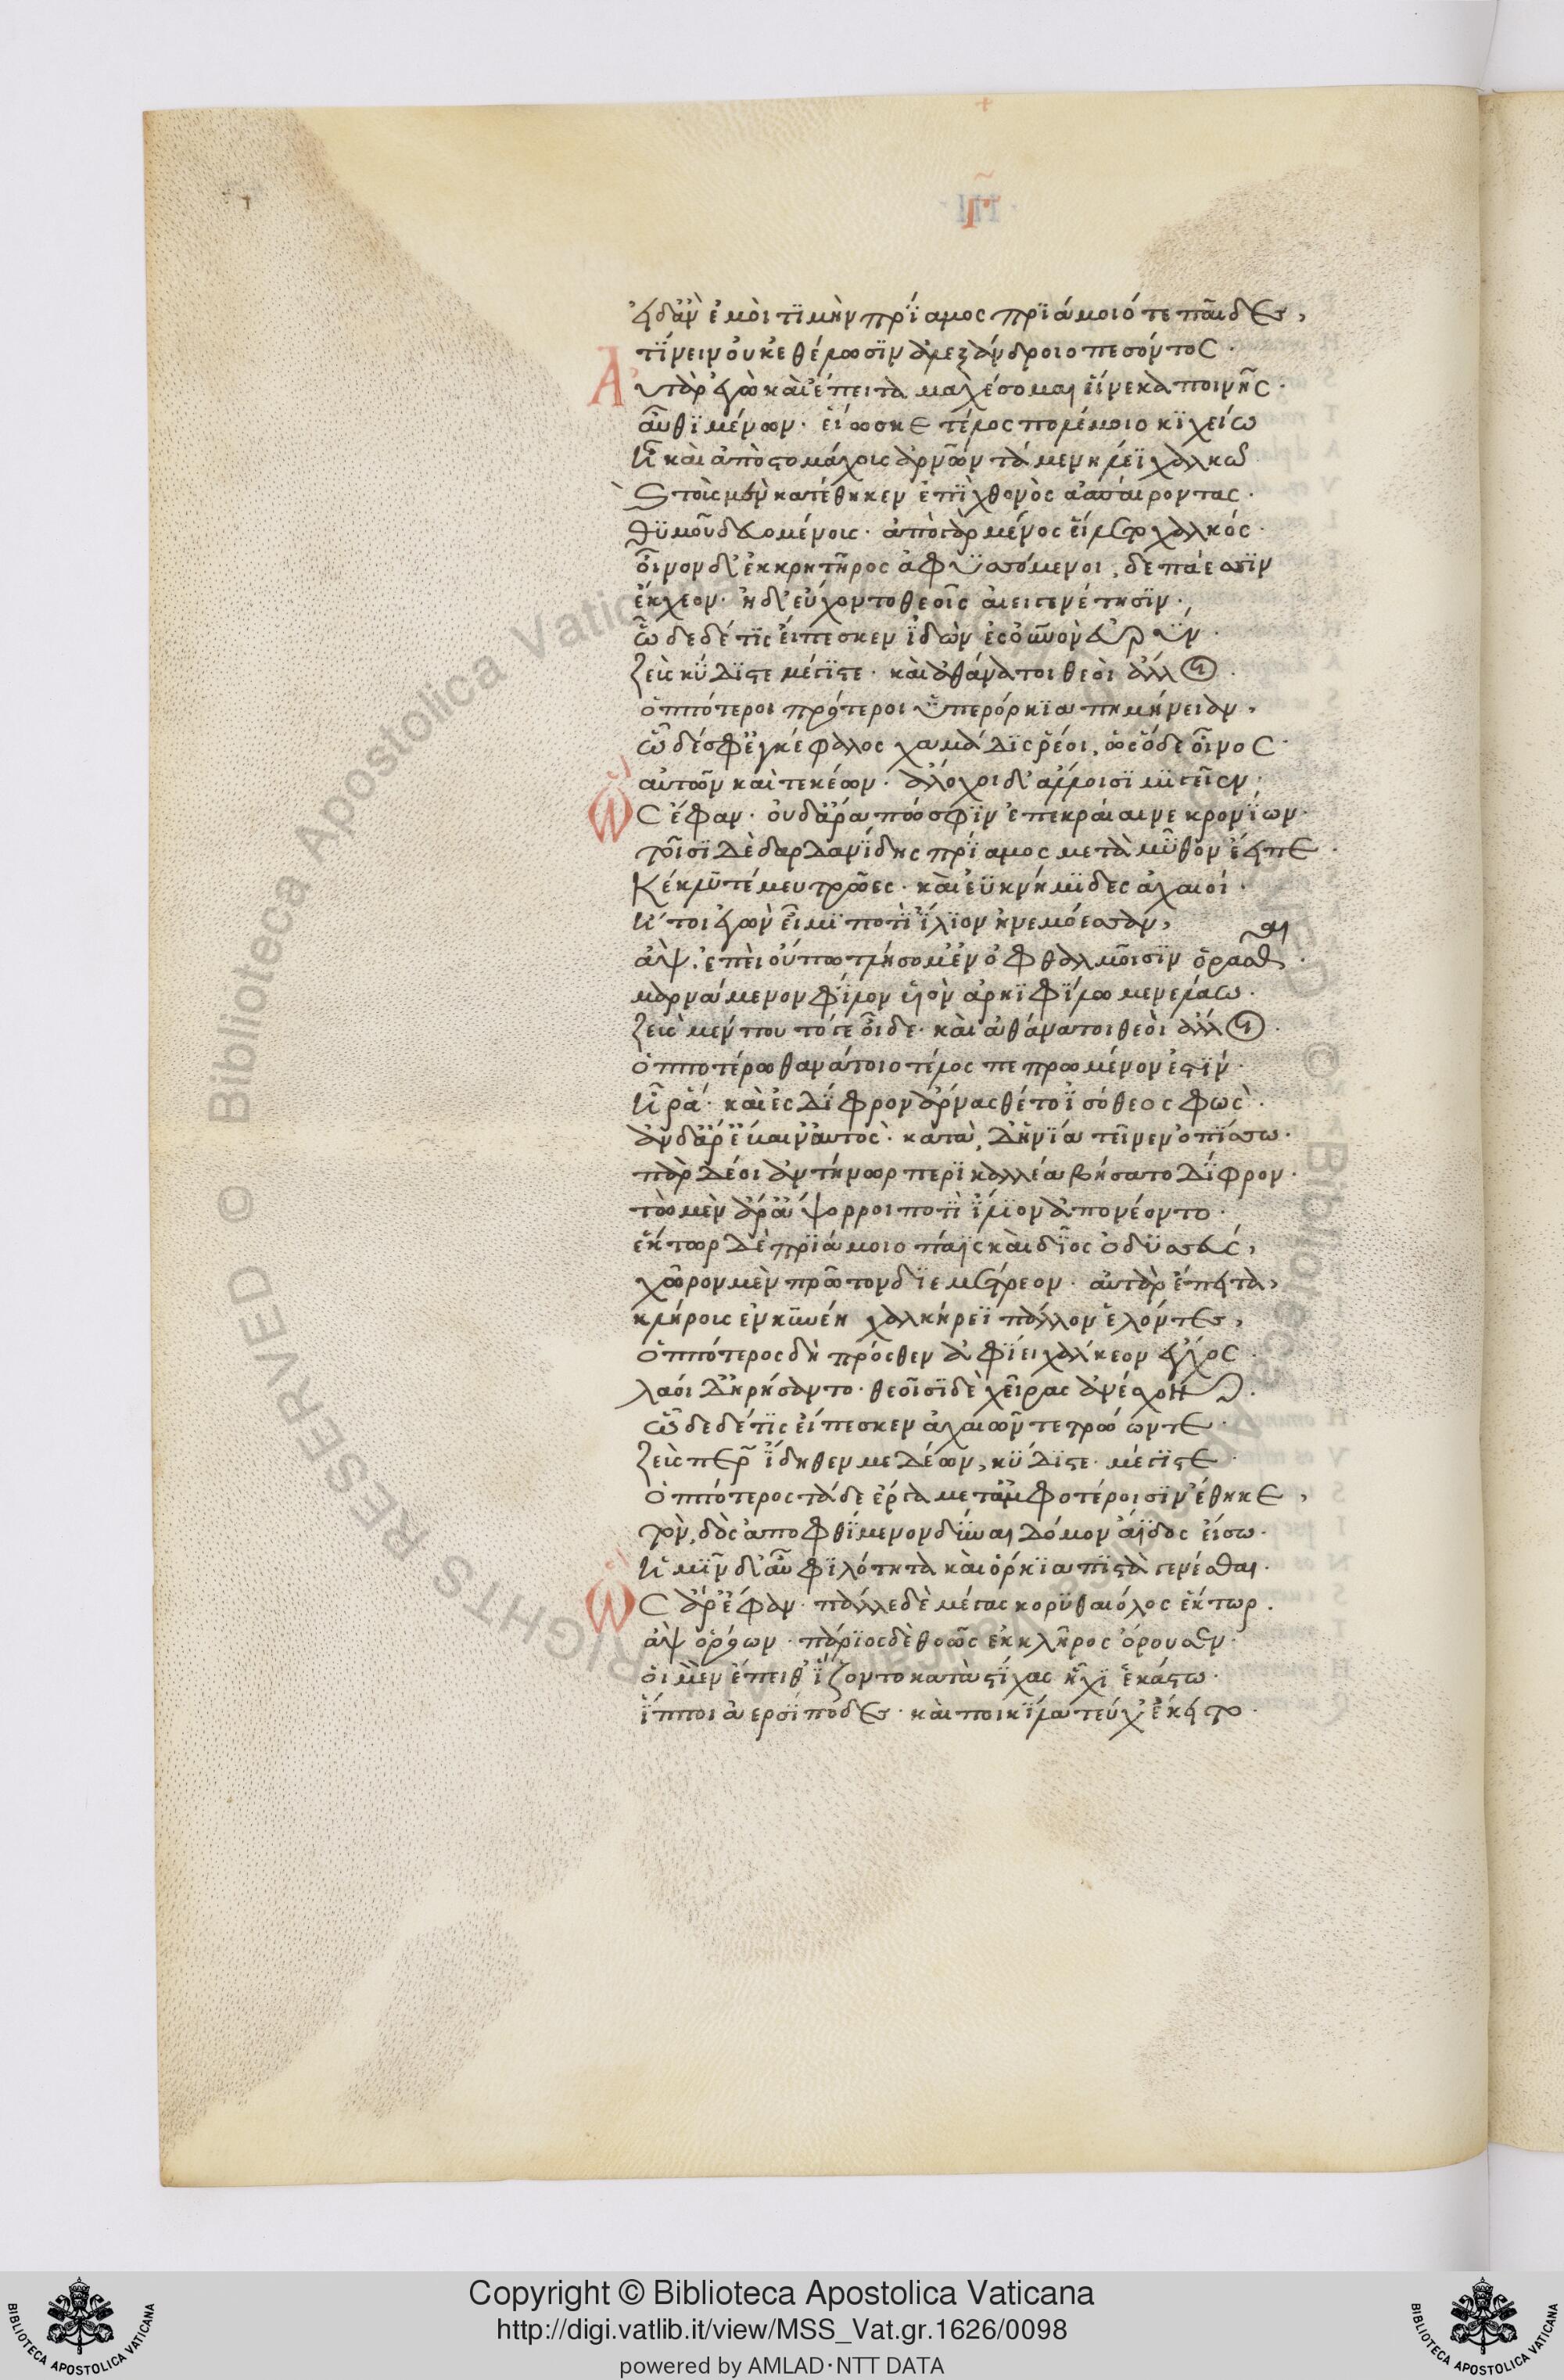 Γ
εἰ δ' ἂν ἐμοὶ τιμὴν πρίαμος πριάμοιό τε παῖδες,
τίνειν οὐκ ἐθέλωσιν ἀλεξάνδροιο πεσόντος·
Αὐτὰρ ἐγὼ καὶ ἔπειτα μαχέσομαι εἵνεκα ποινῆς·
αὖθι μένων· εἵως κε τέλος πολέμοιο κιχείω
ἦ καὶ ἀπὸ στομάχους ἀρνῶν τάμε νηλέϊ χαλκῶ
καὶ τοὺς μὲν κατέθηκεν ἐπὶ χθονὸς ἀσπαίροντας·
θυμοῦ δευομένους· ἀπὸ γὰρ μένος εἵλετο χαλκός·
οἶνον δ' ἐκ κρητῆρος ἀφυσσόμενοι, δεπάεσσιν
ἔκχεον· ἠδ' εὔχοντο θεοῖς αἰειγενέτησιν·
ὧδε δέ τις εἴπεσκεν ἰδὼν ἐς οὐρανὸν εὐρύν·
ζεῦ κύδιστε μέγιστε· καὶ ἀθάνατοι θεοὶ ἄλλοι·
ὁππότεροι πρότεροι ὑπὲρ ὅρκια πημήνειαν,
ὧδέ σφ' ἐγκέφαλος χαμάδις ῥέοι, ὡς ὅδε οἶνος·
αὐτῶν καὶ τεκέων· ἄλοχοι δ' ἄλλοισι μιγεῖεν·
Ὣς ἔφαν· οὐδ' ἄρα πώ σφιν ἐπεκραίαινε κρονίων·
τοῖσι δὲ δαρδανίδης πρίαμος μετὰ μῦθον ἔειπε·
Κέκλυτέ μευ τρῶες· καὶ ἐϋκνήμιδες ἀχαιοί·
ἤτοι ἐγὼν εἶμι ποτὶ ἴλιον ἠνεμόεσσαν,
ἂψ· ἐπεὶ οὔπω τλήσομ' ἐν ὀφθαλμοῖσιν ὁρᾶσθαι·
μαρνάμενον φίλον υἱὸν ἀρηϊφίλω μενελάω·
ζεὺς μέν που τό γε οἶδε· καὶ ἀθάνατοι θεοὶ ἄλλοι·
ὁπποτέρω θανάτοιο τέλος πεπρωμένον ἐστίν·
ἦ ῥα· καὶ ἐς δίφρον ἄρνας θέτο ἰσόθεος φώς·
ἂν δ' ἄρ' ἔβαιν' αὐτός· κατὰ, δ' ἡνία τεῖνεν ὀπίσσω·
πὰρ δέ οἱ ἀντήνωρ περικαλλέα βήσατο δίφρον·
τὼ μὲν ἄρ' ἄψορροι ποτὶ ἴλιον ἀπονέοντο·
ἕκτωρ δὲ πριάμοιο πάϊς καὶ δῖος ὀδυσσεύς,
χῶρον μὲν πρῶτον διεμέτρεον· αὐτὰρ ἔπειτα,
κλήρους ἐν κυνέη χαλκήρεϊ πάλλον ἑλόντες,
ὁππότερος δὴ πρόσθεν ἀφείει χάλκεον ἔγχος·
λαοὶ δ' ἠρήσαντο· θεοῖσι δὲ χεῖρας ἀνέσχον·
ὧδε δέ τις εἴπεσκεν ἀχαιῶν τε τρώων τε·
ζεῦ πάτερ ἴδηθεν μεδέων, κύδιστε μέγιστε·
ὁππότερος τάδε ἔργα μετ' ἀμφοτέροισιν ἔθηκε,
τὸν, δὸς ἀποφθίμενον δῦναι δόμον ἄϊδος εἴσω·
ἡμῖν δ' αὖ φιλότητα καὶ ὅρκια πιστὰ γενέσθαι·
Ὣς ἄρ' ἔφαν· πάλλε δὲ μέγας κορυθαιόλος ἕκτωρ.
ἂψ ὁρόων· πάριος δὲ θοῶς ἐκ κλῆρος ὄρουσεν·
οἱ μὲν ἔπειθ' ἵζοντο κατὰ στίχας ἧχι ἑκάστω·
ἵπποι ἀερσίποδες· καὶ ποικίλα τεύχε' ἔκειτο·
Copyright © Biblioteca Apostolica Vaticana
http://digi.vatlib.it/view/MSS_Vat.gr.1626/0098
powered by AMLAD·NTT DATA